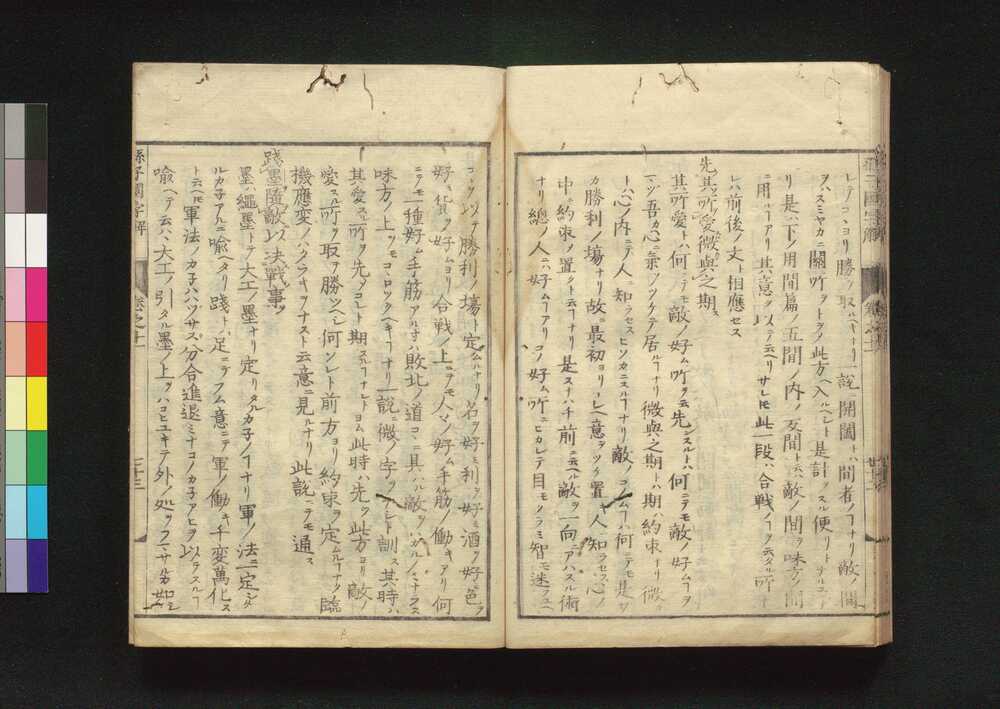 レテココヨリ勝ヲ取ルヘキナリ一說ニ開闔トハ間者ノコナリ敵ノ間
ヲハスミヤカニ關所ヲトヲシテ此方ヘ入ルヘシト是計ヲスル便リトナルユヘナ
リ是ハ下ノ用間篇ノ五間ノ内ノ反間ト云ハ敵ノ間ヲ味方ノ間
ニ用ルコアリ其意ヲ以テ云ヘリサレ𪜈此一段ハ合戰ノコヲ云タル所ナ
レハ前後ノ文ト相應セス
先其所愛微與之期
其所愛トハ何ノテモ敵ノ好ム所ヲ云先ンスルトハ何ニテモ敵ノ好ムコヲ
マツ吾カ心ニ乗ノツケテ居ルコナリ微與之期トハ期ハ約束ナリ微
トハ心ノ内ニテ人ニ知ラセスヒソカニスルコナリ敵ノコノムコハ何ニテモ是
カ勝利ノ場ナリ故ニ最初ヨリコレヘ意ヲツケ置キ人ニ知ラセス心ノ
中ニ約束ノ置クト云コナリ是スナハチ前ニ云ヘル敵ヲ一向ニアハスル術
ナリ總ノ人ニハ好ムコアリコノ好ム所ニヒカレテ目モクラミ智モ迷フユヘ
ココヲ以テ勝利ノ場ト定ムルナリ名ヲ好ミ利ヲ好ミ酒ヲ好ミ色ヲ
好ミ貨ヲ好ムヨリ合戰ノ上ニテモ人々好ム手筋ノ働キアリ何
ニテモ一種好ム手筋アルナハ敗北ノ道ココニ具ハル敵ヲハカルノミナラス
味方ノ上ヲモココロツクヘキコナリ一說ニ微ノ字ヲ訓ス其時ハ
其愛スル所ヲ先ダコレト期スルコナシトヨム此時ハ先ツ此方ヨリ敵ノ
愛スル所ヲ取ヲ勝ツヘシ何ソレト前方ヨリ約束ヲ定ムルコナク臨
機應変ノハタラキヲナスト云意ニ見ルナリ此說ニテモ通ス
踐墨隨敵以決戰事
墨ハ繩墨トテ大工ノ墨ナリ定リタルカ子ノコナリ軍ノ法ニ一定シタ
ルカ子アルニ喩ヘタリ踐トハ足ニテフム意ニテ軍ノ働キ千変萬化ス
ト云ヘ𪜈軍法ノカ子ハハヅサズ分合進退ミナコノカ子アヒヲ以テスルコ
喩ヘテ云ハハ大工ノ引タル墨ノ上ヲハコビユキテ外ノ処ヲフマサルカ如シ
孫子國字解
卷之十一
七十三